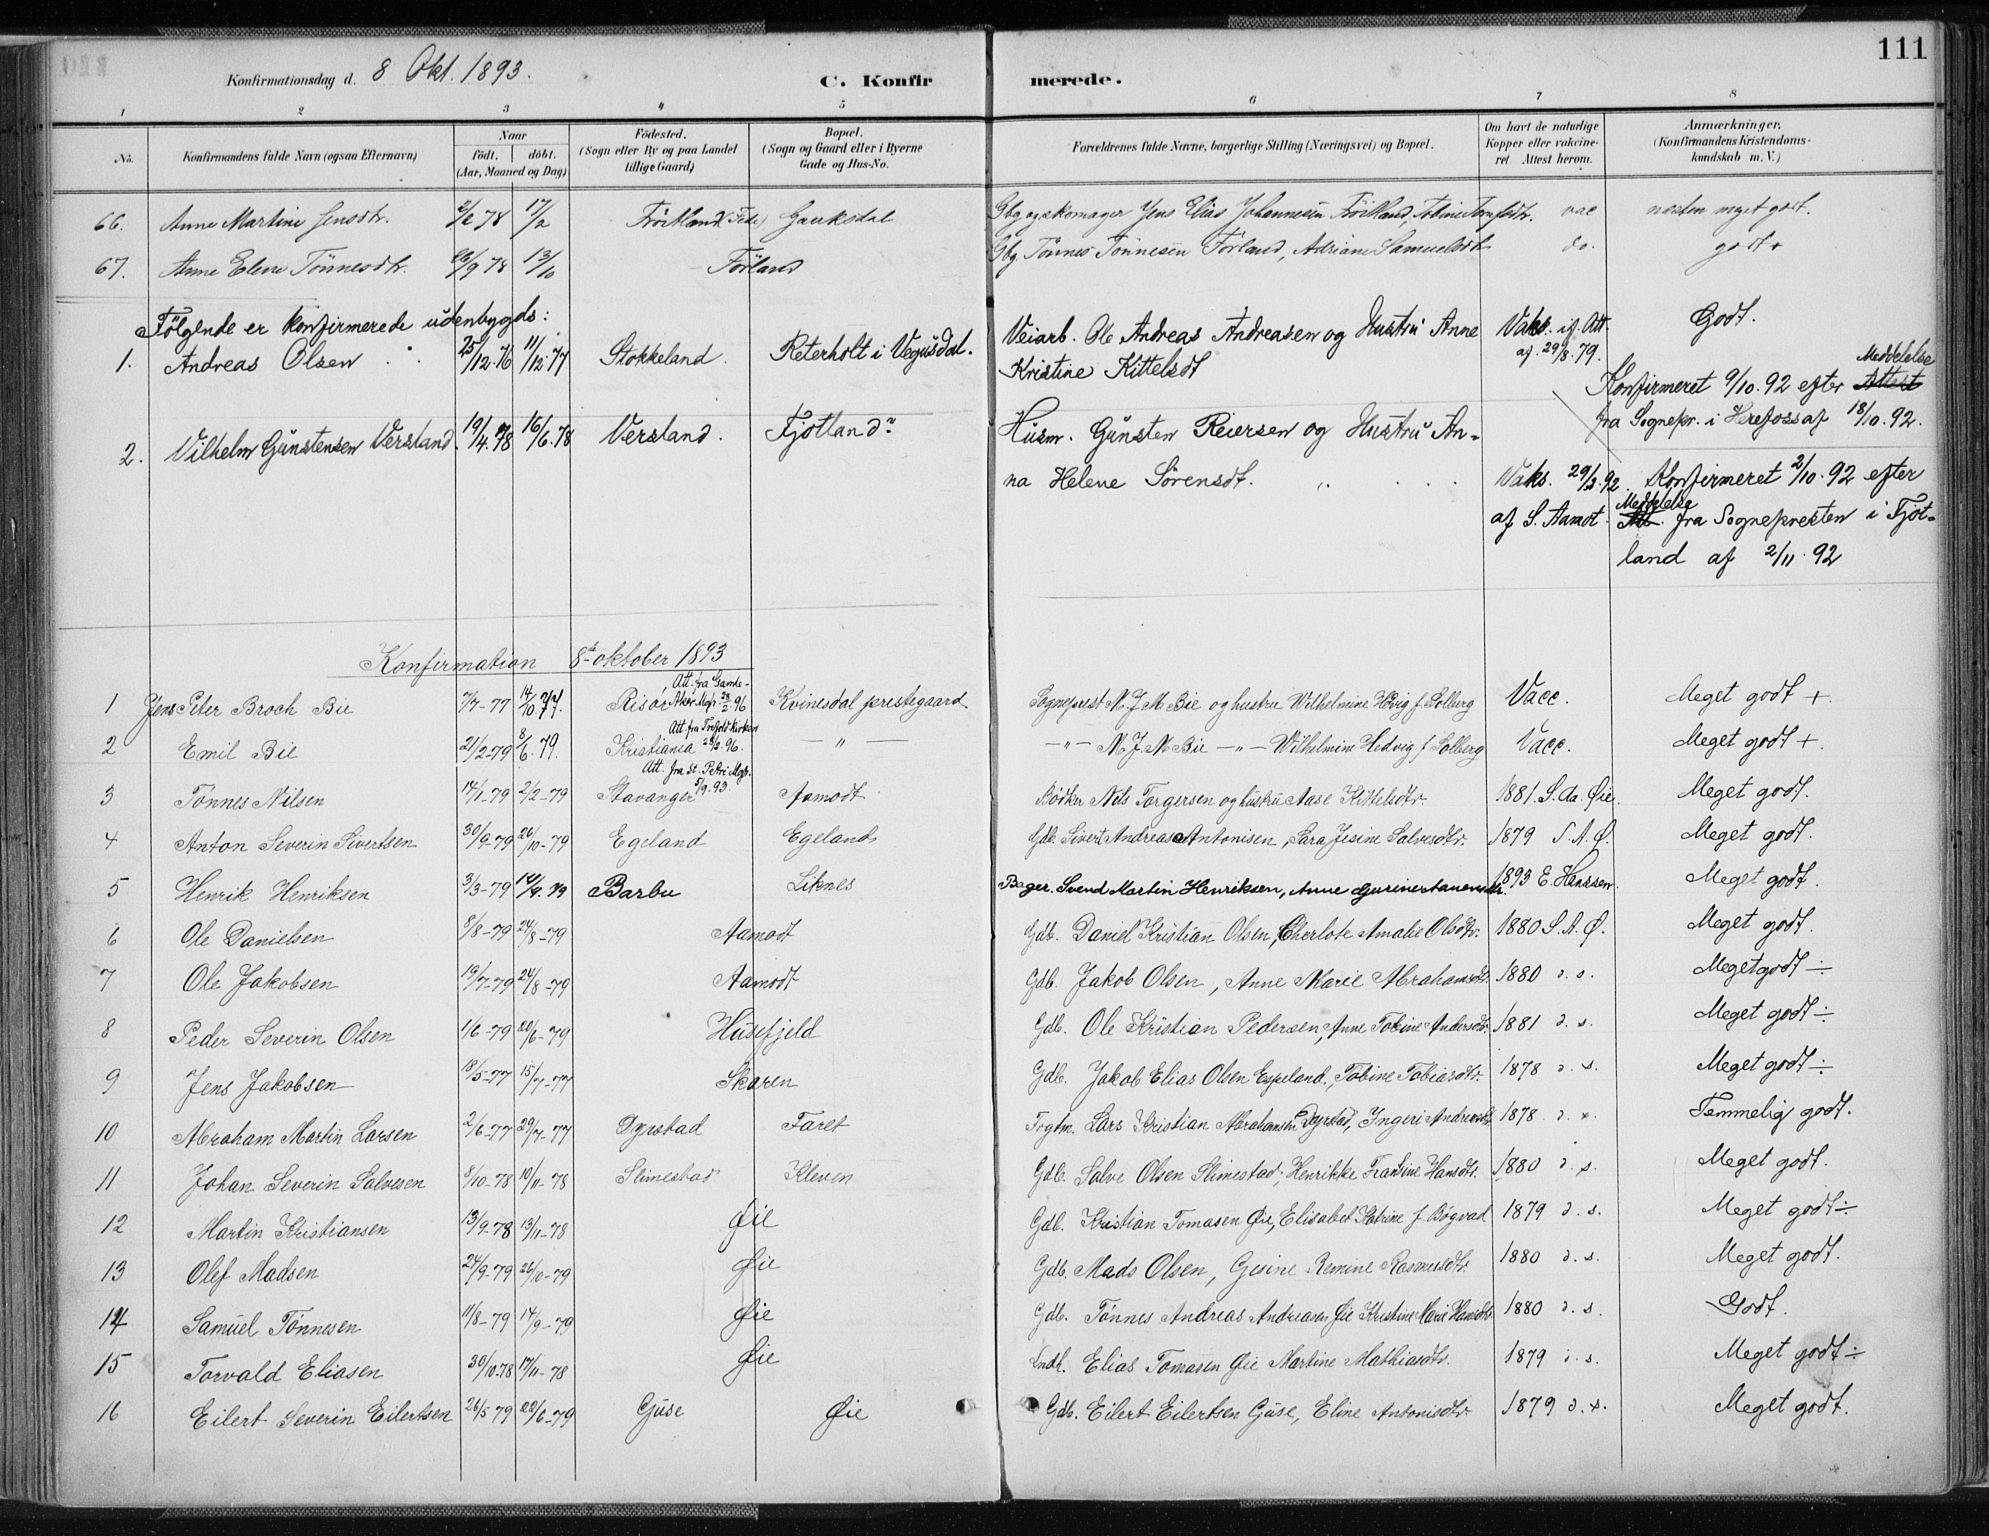 111
Konfirmationsdag d. 8 Okt. 1893. C. Konfirmerede.
1 2 3 4 5 6 7 8
No. Konfirmandens fulde Navn (ogsaa Efternavn) Naar födt. döbt. (Aar, Maaned og Dag) Födested. (Sogn eller By og paa Landet tillige Gaard) Bopæl. (Sogn og Gaard eller i Byerne Gade og Hus-No. Forældrenes fulde Navne, borgerlige Stilling (Næringsvei) og Bopæl. Om havt de naturlige Kopper eller vakcineret. Attest herom. Anmærkninger. (Konfirmandens Kristendomskundskab m. V.)
66. Anne Martine Jensdtr. 2/2 78 17/2 Fröitland (Fede) Gauksdal Gbg og skomager Jens Elias Johannesen Fröitland, Tobine dtr. vac næsten meget godt.
67. Anne Elene Tönnesdtr. 26/9 78 13/10 Förland Gbg Tönnes Tönnesen Förland, Adriane Samuelsdtr do. godt
Fölgende er konfirmerede udenbygds:
1. Andreas Olsen 25/12.76 11/12.77 Stokkeland. Reterholt i Vegusdal. Veiarb. Ole Andreas Andreasen og Hustru Anne Vaks. if. Att. Godt.
Kristine Kittelsdt af. 29/8.79. Konfirmeret 9/10.92 efter Attest Meddelelse
fra Sognepr. i Herefoss af 18/10.92.
2. Vilhelm Günstensen Versland. 19/4.78 16/6.78 Versland. Fjotland. Husm. Günsten Reiersen og Hustru An-
na Helene Sörensdt. Vaks. 29/3.92. Konfirmeret 2/10.92 efter
af S. Aamot Att. Meddelelse fra Sognepresten i Fjot-
land af 2/11.92
Konfirmation 8de oktober 1893
1 Jens Peter Broch Bie 7/7-77 14/10 77. Risör Att. fra Gamle Aker Mgh. 28/2.96 Kvinesdal prestegaard Sogneprest N J M Bie og hustru Wilhelmine Hedvig f. Solberg Vacc. Meget godt +.
2 Emil Bie 21/2-79 8/6.79. Kristiania Att. fra Trefold.kirken 29/2.96. —"— —"— N J M Bie —"— Wilhelmine Hedvig f Solberg Vacc. Meget godt +.
3 Tönnes Nilsen 14/1-79 2/2-79 Stavanger Att. fra St. Petri Mgh. 5/9.93. Aamodt Bödker Nils Torgersen og hustru Aase Kittelsdtr. 1881. S. Aa. Øie. Meget godt.
4 Anton Severin Sivertsen 30/9-79 26/10-79 Egeland Egeland Gdb. Sivert Andreas Antonisen, Sara Jesine Salvesdtr. 1879 S. A. Ø. Meget godt.
5 Henrik Henriksen 3/3-79 14/9.79 Barbu Liknes Bager. Svend Martin Henriksen, Anne 1893 E. Hanssen. Meget godt.
6 Ole Danielsen 8/8-79 24/8-79 Aamodt Gdb. Daniel Kristian Olsen, Cherlote Amalie Olsdtr. 1880 S. A. Ø. Meget godt.
7 Ole Jakobsen 19/7-79 24/8-79 Aamodt Gdb. Jakob Olsen, Anne Marie Abrahamsdtr. 1880 d. s. Meget godt ÷
8 Peder Severin Olsen 1/6-79 20/6-79 Husefjeld Gdb. Ole Kristian Pedersen, Anne Tobine Andersdtr. 1881 d. s. Meget godt ÷
9 Jens Jakobsen 18/5-77 15/7-77 Skaren Gdb. Jakob Elias Olsen Espeland, Tobine Tobiasdtr. 1878 d. s. Meget godt ÷
10 Abraham Martin Larsen 2/6-77 29/7-77 Dyrstad Faret Frgtm. Lars Kristian Abrahamsen Dyrstad, Ingeri Andreasdtr 1878 d. s. Temmelig godt.
11 Johan Severin Salvesen 8/10-78 10/11-78 Slimestad Kleven Gdb. Salve Olsen Slimestad, Henrikke Fransine Hansdtr. 1880 d. s. Meget godt.
12 Martin Kristiansen 13/9-78 13/11-78 Øie Gdb. Kristian Tomasen Øie, Elisabet Katrine f Bøgvad 1879 d. s. Meget godt ÷
13 Olef Madsen 24/9-79 26/10-79 Øie Gdb. Mads Olsen, Gesine Remine Rasmusdtr. 1880 d. s. Meget godt.
14 Samuel Tönnesen 11/8-79 14/9-79 Øie Gdb. Tönnes Andreas Andreasen Øie Kristine Marie Hansdtr 1880 d. s. Godt.
15 Torvald Eliasen 30/10.78 17/11-78 Øie Indt. Elias Tomasen Øie Martine Mathiasdtr. 1879 d. s. Meget godt ÷
16 Eilert Severin Eilertsen 26/5 79 22/6-79 Gjuse Øie Gdb. Eilert Eilertsen Gjuse, Eline Antonisdtr. 1879 d. s. Meget godt.